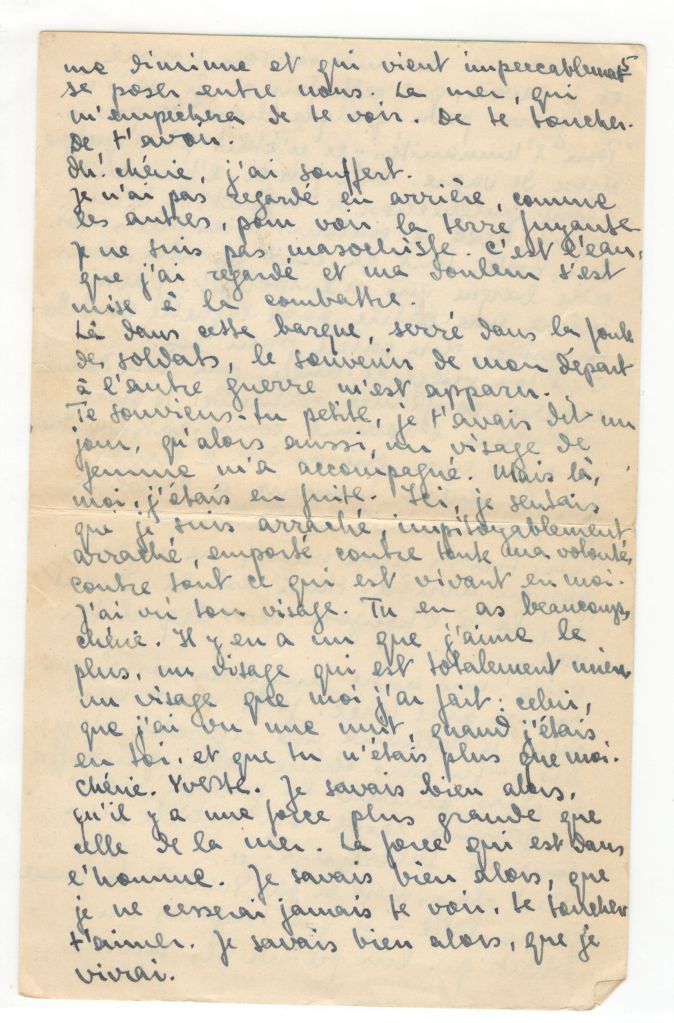 5
me diminue et qui vient impeccablement
se poser entre nous. La mer, qui
m'empêchera de te voir. De te toucher.
De t'avoir.
Oh! chérie, j'ai souffert.
Je n'ai pas regardé en arrière, comme
les autres, pour voir la terre fuyante
je ne suis pas masochiste. C'est l'eau,
que j'ai regardé et ma douleur s'est
mise à la combattre.
Là dans cette barque, serré dans la foule
des soldats, le souvenir de mon départ
à l'autre guerre m'est apparu.
Te souviens-tu petite, je t'avais dit un
jour, qu'alors aussi, un visage de
femme m'a accompagné. Mais là,
moi, j'étais en fuite. Ici, je sentais
que je suis arraché, impitoyablement
arraché, emporté contre toute ma volonté,
contre tout ce qui est vivant en moi.
J'ai vu ton visage. Tu en as beaucoup,
chérie. Il y en a un que j'aime le
plus, un visage qui est totalement mien
un visage que moi j'ai fait: celui,
que j'ai vu une nuit, quand j'étais
en toi, et que tu n'étais plus que moi.
Chérie. Yvette. Je savais bien alors,
qu'il y a une force plus grande que
celle de la mer. La force qui est dans
l'homme. Je savais bien alors, que
je ne cesserai jamais te voir, te toucher
t'aimer. Je savais bien alors, que je
vivrai.